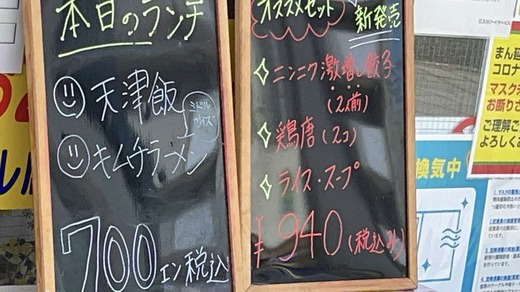 本日のランチ
天津飯
キムチラーメン
ミドル
サイズ
700エン税込
オススメセット
新発売
ニンニク激増し餃子
(2人前)
鶏唐(2コ)
ライス・スープ
¥940(税込み)
まん延
コロナ
マスク
お断り
ご理解ご
よろしく
換気中